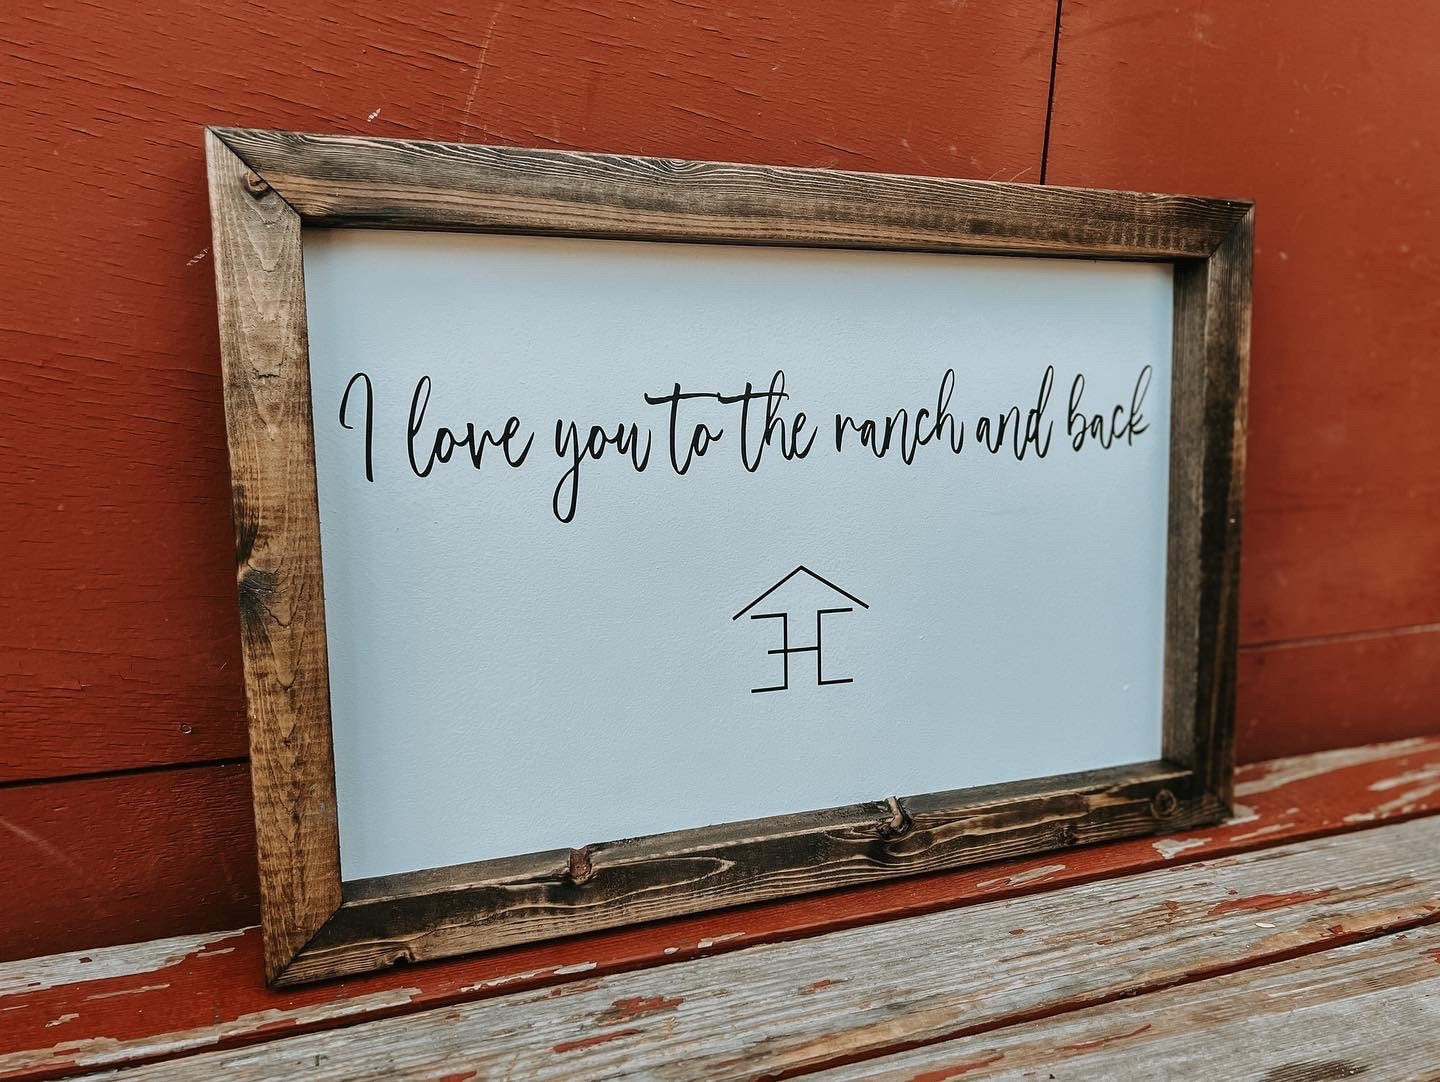 I love you to the ranch and back